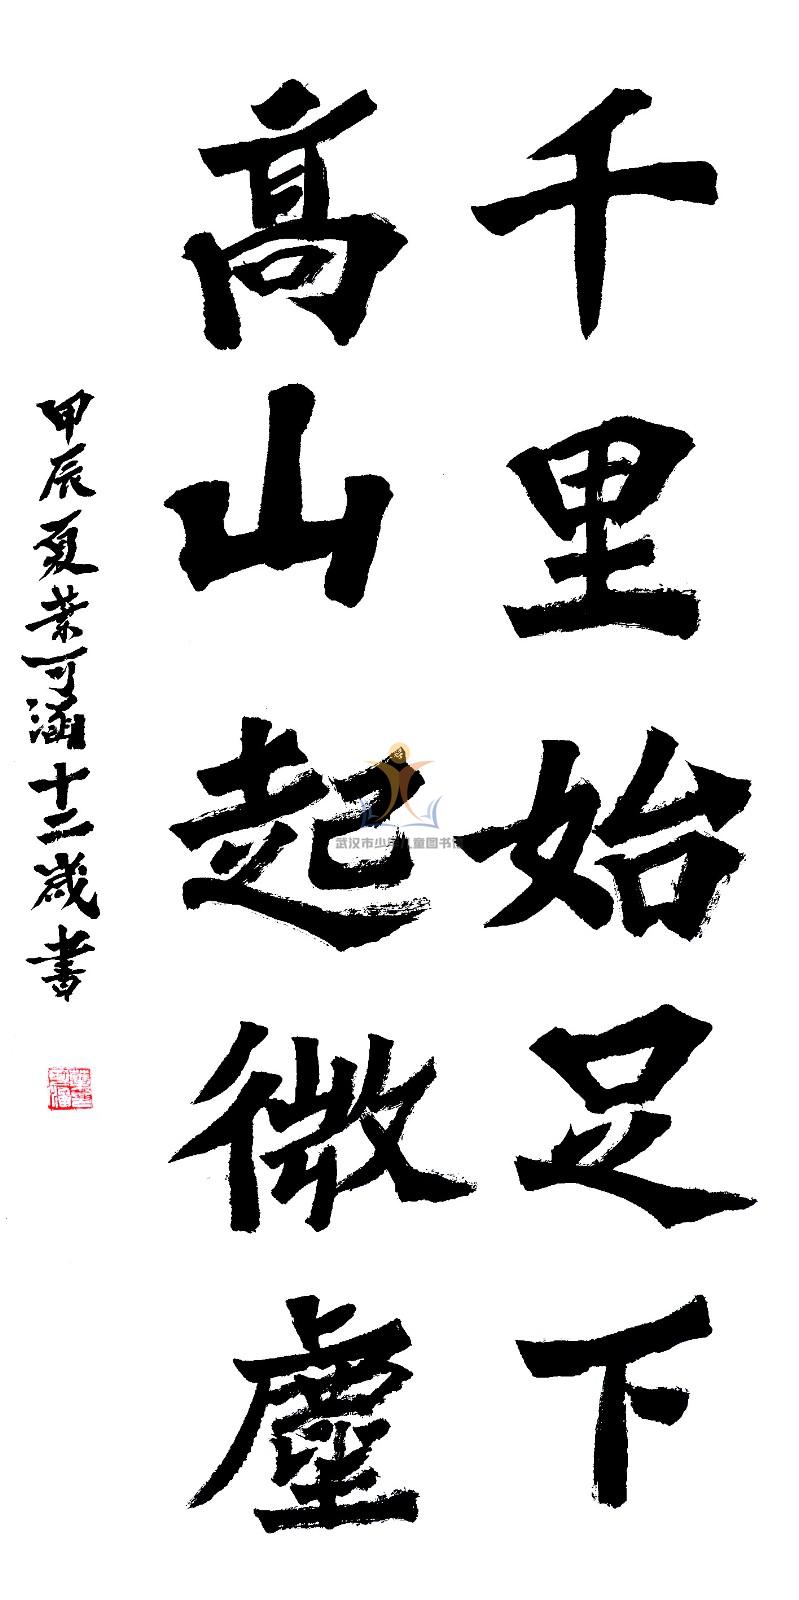 千里始足下
髙山起微塵
甲辰夏葉可涵十二歲書
武汉市少年儿童图书馆